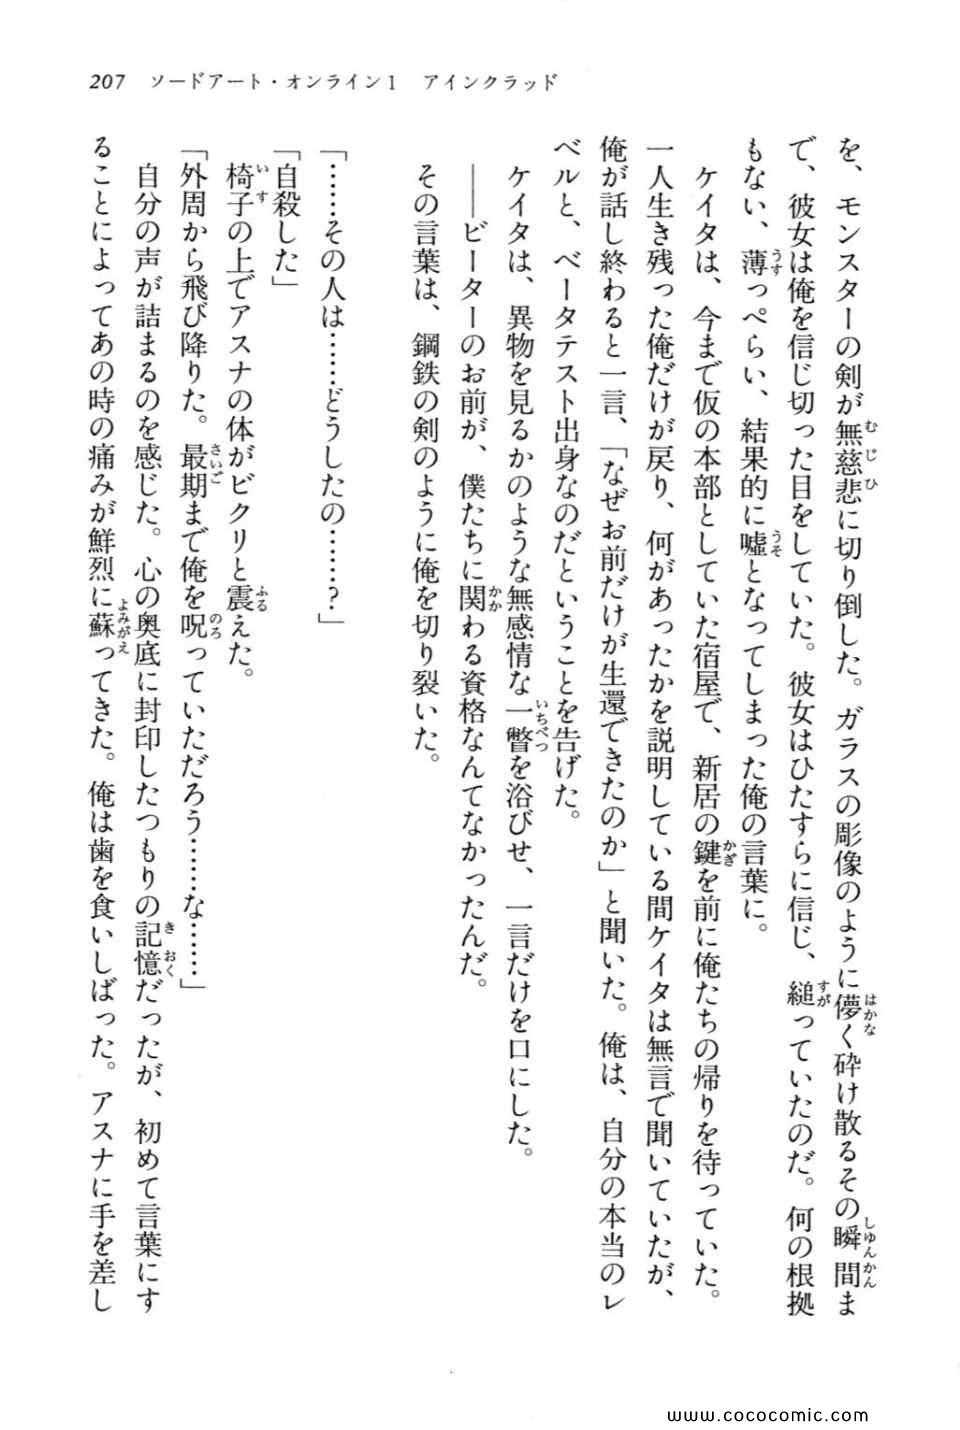 207 ソードアート・オンライン1 アインクラッド
を、モンスターの剣が無慈悲に切り倒した。ガラスの彫像のように儚く砕け散るその瞬間ま
で、彼女は俺を信じ切った目をしていた。彼女はひたすらに信じ、縋っていたのだ。何の根拠
もない、薄っぺらい、結果的に嘘となってしまった俺の言葉に。
ケイタは、今まで仮の本部としていた宿屋で、新居の鍵を前に俺たちの帰りを待っていた。
一人生き残った俺だけが戻り、何があったかを説明している間ケイタは無言で聞いていたが、
俺が話し終わると一言、「なぜお前だけが生還できたのか」と聞いた。俺は、自分の本当のレ
ベルと、ベータテスト出身なのだということを告げた。
ケイタは、異物を見るかのような無感情な一瞥を浴びせ、一言だけを口にした。
――ビーターのお前が、僕たちに関わる資格なんてなかったんだ。
その言葉は、鋼鉄の剣のように俺を切り裂いた。
「……その人は……どうしたの……?」
「自殺した」
椅子の上でアスナの体がビクリと震えた。
「外周から飛び降りた。最期まで俺を呪っていただろう……な……」
自分の声が詰まるのを感じた。心の奥底に封印したつもりの記憶だったが、初めて言葉にす
ることによってあの時の痛みが鮮烈に蘇ってきた。俺は歯を食いしばった。アスナに手を差し
www.cococomic.com